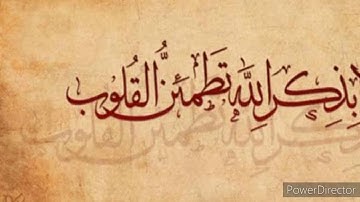 بِذِكرِ اللَّهِ تَطمَئِنُّ القُلوب
PowerDirector